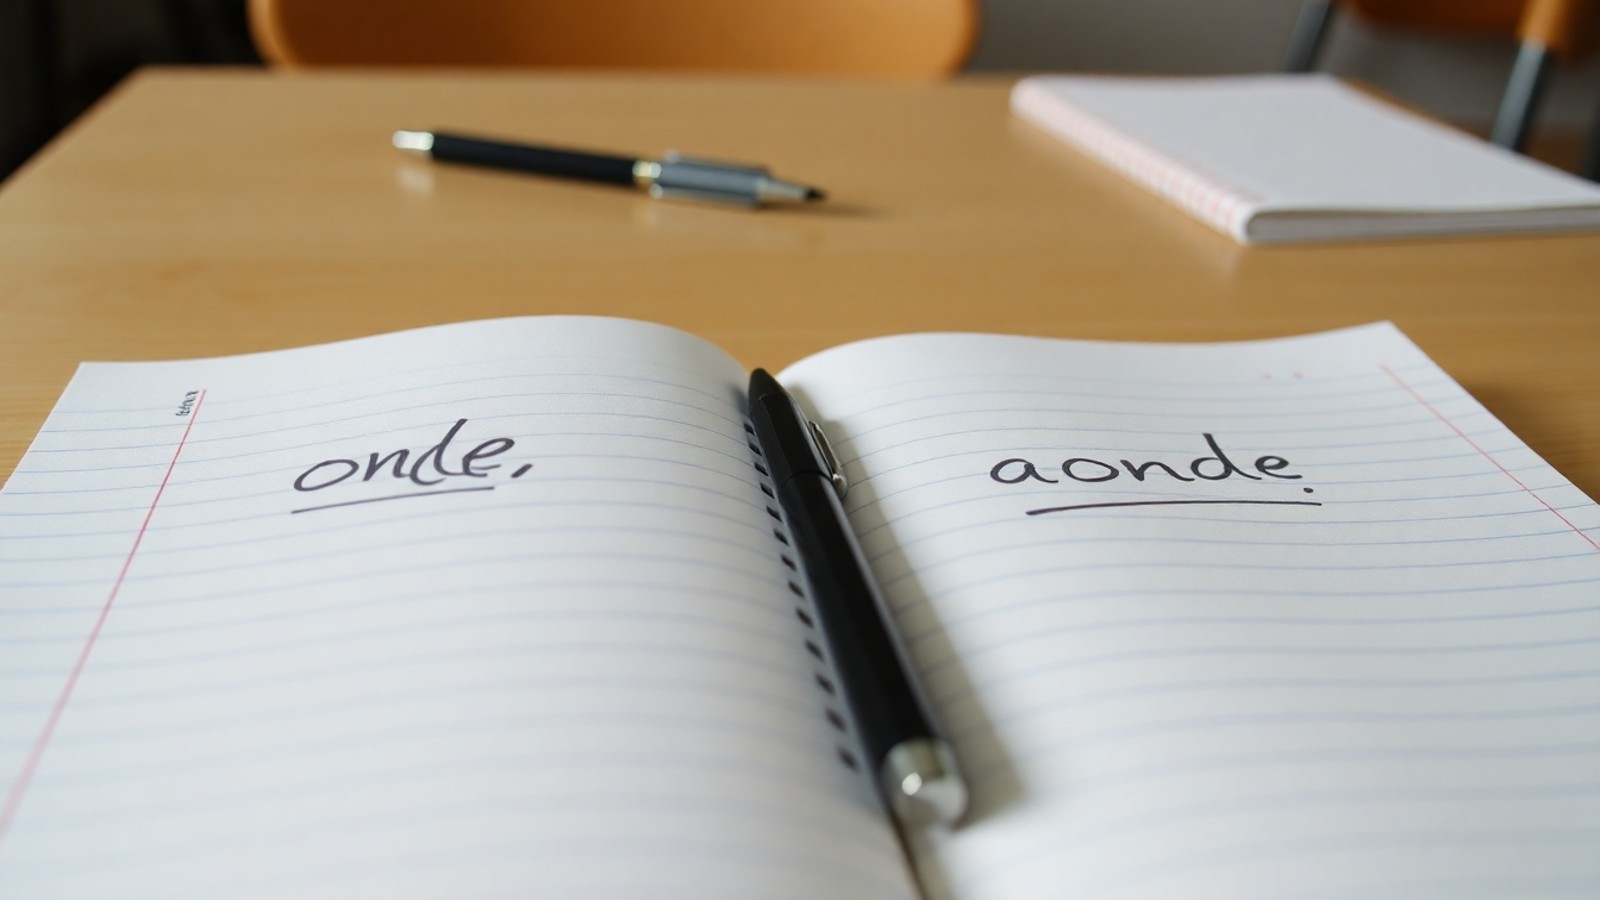 onde,
aonde.